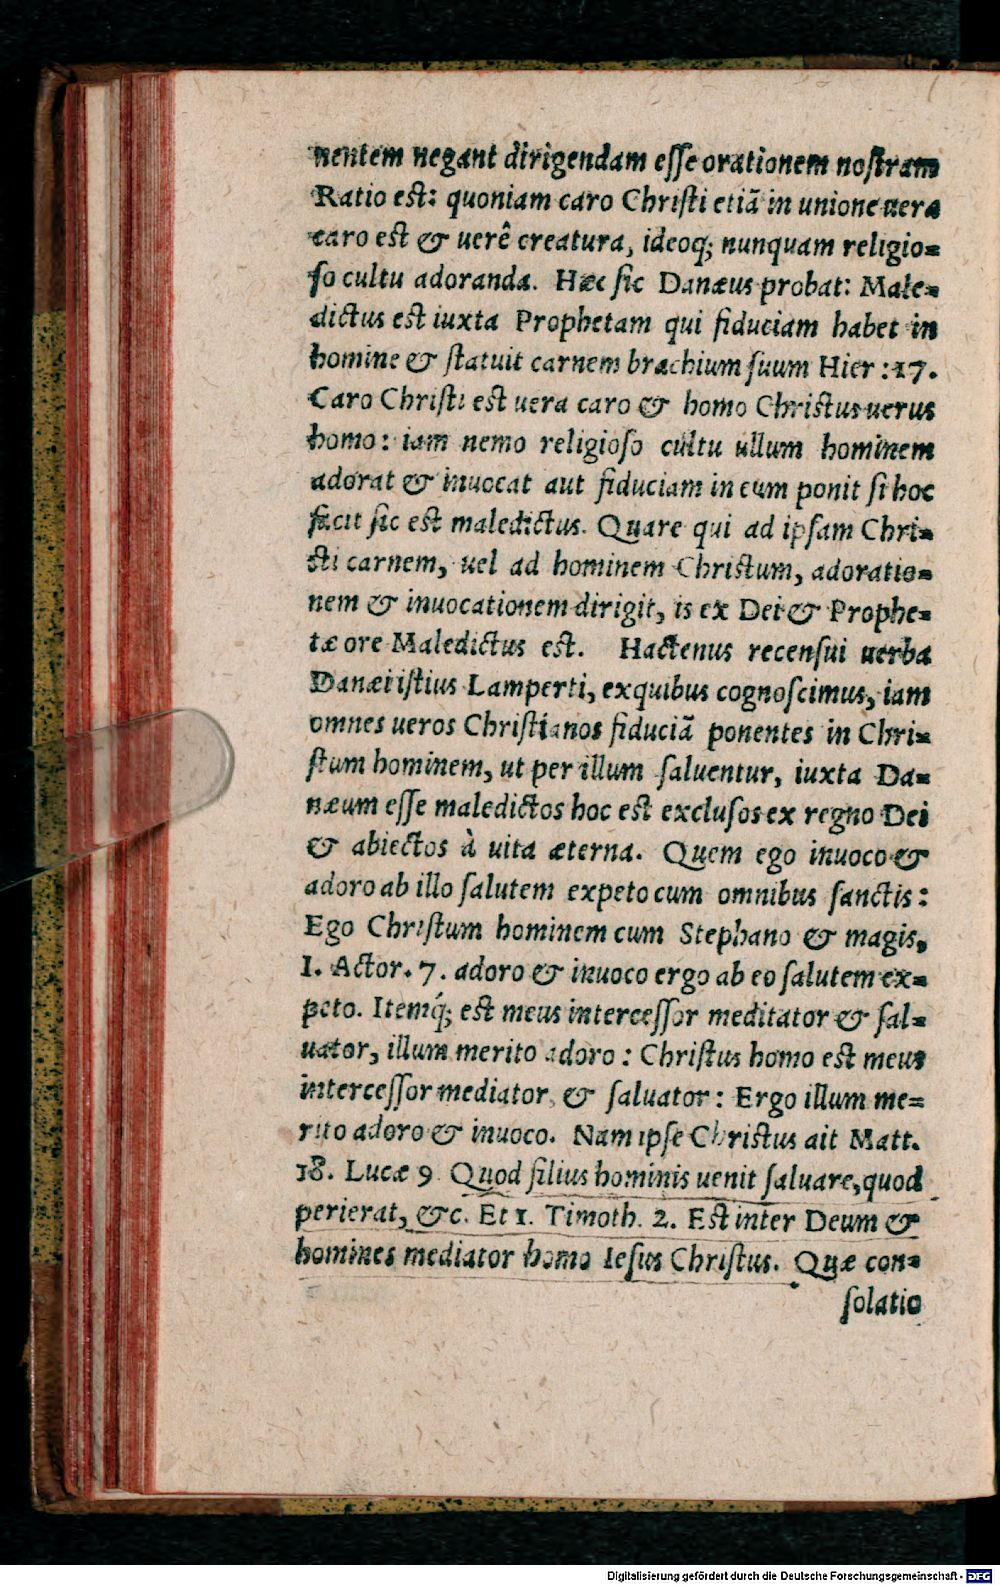 nentem negant dirigendam esse orationem nostram
Ratio est: quoniam caro Christi etiã in unione uera
caro est & uerê creatura, ideoq; nunquam religio=
so cultu adoranda. Hæc sic Danæus probat: Male=
dictus est iuxta Prophetam qui fiduciam habet in
homine & statuit carnem brachium suum Hier: 17.
Caro Christi est uera caro & homo Christus uerus
homo: iam nemo religioso cultu ullum hominem
adorat & inuocat aut fiduciam in eum ponit si hoc
facit sic est maledictus. Quare qui ad ipsam Chri=
sti carnem, uel ad hominem Christum, adoratio=
nem & inuocationem dirigit, is ex Dei & Prophe=
tæ ore Maledictus est. Hactenus recensui uerba
Danæi istius Lamperti, ex quibus cognoscimus, iam
omnes ueros Christianos fiduciã ponentes in Chri=
stum hominem, ut per illum saluentur, iuxta Da=
næum esse maledictos hoc est exclusos ex regno Dei
& abiectos à uita æterna. Quem ego inuoco &
adoro ab illo salutem expeto cum omnibus sanctis:
Ego Christum hominem cum Stephano & magis,
1. Actor. 7. adoro & inuoco ergo ab eo salutem ex=
peto. Itemq́; est meus intercessor meditator & sal=
uator, illum merito adoro: Christus homo est meus
intercessor mediator, & saluator: Ergo illum me=
rito adoro & inuoco. Nam ipse Christus ait Matt.
18. Lucæ 9. Quod filius hominis uenit saluare, quod
perierat, &c. Et 1. Timoth. 2. Est inter Deum &
homines mediator homo Iesus Christus. Quæ con=
solatio
Digitalisierung gefördert durch die Deutsche Forschungsgemeinschaft - DFG